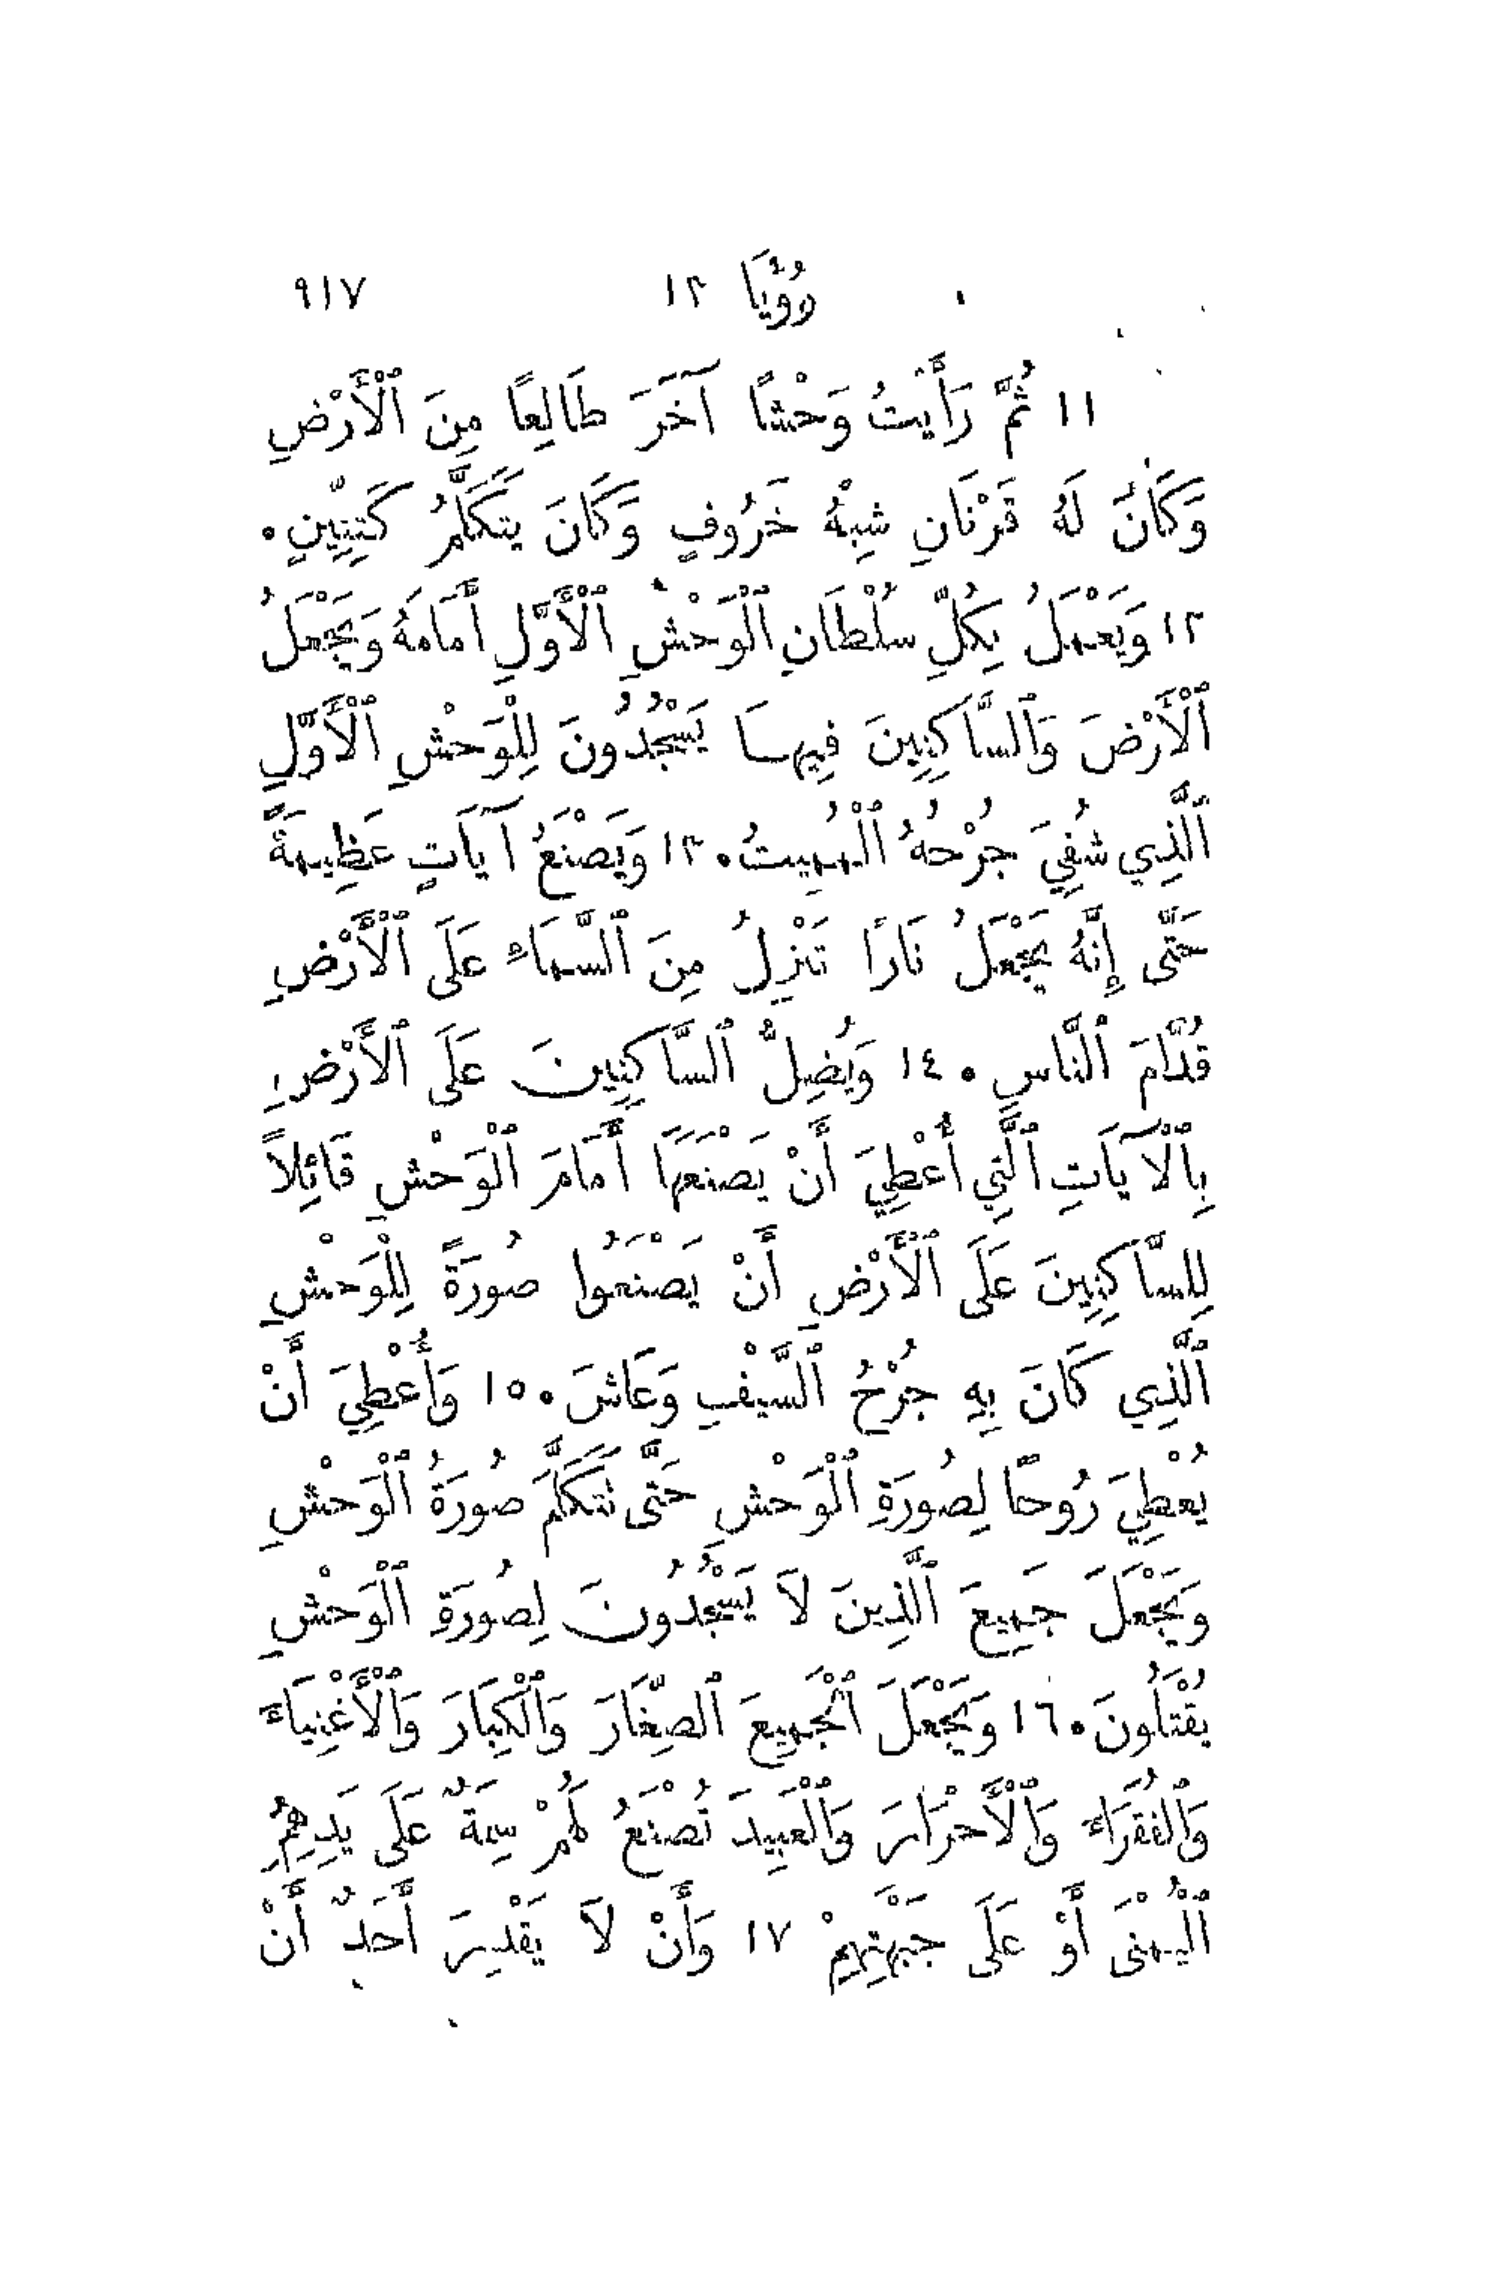 رُؤْيَا ١٣ ٩١٧
١١ ثُمَّ رَأَيْتُ وَحْشًا آخَرَ طَالِعًا مِنَ ٱلْأَرْضِ
وَكَانَ لَهُ قَرْنَانِ شِبْهُ خَرُوفٍ وَكَانَ يَتَكَلَّمُ كَتِنِّينٍ ٠
١٢ وَيَعْمَلُ بِكُلِّ سُلْطَانِ ٱلْوَحْشِ ٱلْأَوَّلِ أَمَامَهُ وَيَجْعَلُ
ٱلْأَرْضَ وَٱلسَّاكِنِينَ فِيهَا يَسْجُدُونَ لِلْوَحْشِ ٱلْأَوَّلِ
ٱلَّذِي شُفِيَ جُرْحُهُ ٱلْمُمِيتُ ٠ ١٣ وَيَصْنَعُ آيَاتٍ عَظِيمَةً
حَتَّى إِنَّهُ يَجْعَلُ نَارًا تَنْزِلُ مِنَ ٱلسَّمَاءِ عَلَى ٱلْأَرْضِ
قُدَّامَ ٱلنَّاسِ ٠ ١٤ وَيُضِلُّ ٱلسَّاكِنِينَ عَلَى ٱلْأَرْضِ
بِٱلْآيَاتِ ٱلَّتِي أُعْطِيَ أَنْ يَصْنَعَهَا أَمَامَ ٱلْوَحْشِ قَائِلاً
لِلسَّاكِنِينَ عَلَى ٱلْأَرْضِ أَنْ يَصْنَعُوا صُورَةً لِلْوَحْشِ
ٱلَّذِي كَانَ بِهِ جُرْحُ ٱلسَّيْفِ وَعَاشَ ٠ ١٥ وَأُعْطِيَ أَنْ
يُعْطِيَ رُوحًا لِصُورَةِ ٱلْوَحْشِ حَتَّى تَتَكَلَّمَ صُورَةُ ٱلْوَحْشِ
وَيَجْعَلَ جَمِيعَ ٱلَّذِينَ لاَ يَسْجُدُونَ لِصُورَةِ ٱلْوَحْشِ
يُقْتَلُونَ ٠ ١٦ وَيَجْعَلَ ٱلْجَمِيعَ ٱلصِّغَارَ وَٱلْكِبَارَ وَٱلْأَغْنِيَاءَ
وَٱلْفُقَرَاءَ وَٱلْأَحْرَارَ وَٱلْعَبِيدَ تُصْنَعُ لَهُمْ سِمَةٌ عَلَى يَدِهِمُِ
ٱلْيُمْنَى أَوْ عَلَى جَبْهَتِهِمْ ١٧ وَأَنْ لاَ يَقْدِرَ أَحَدٌ أَنْ